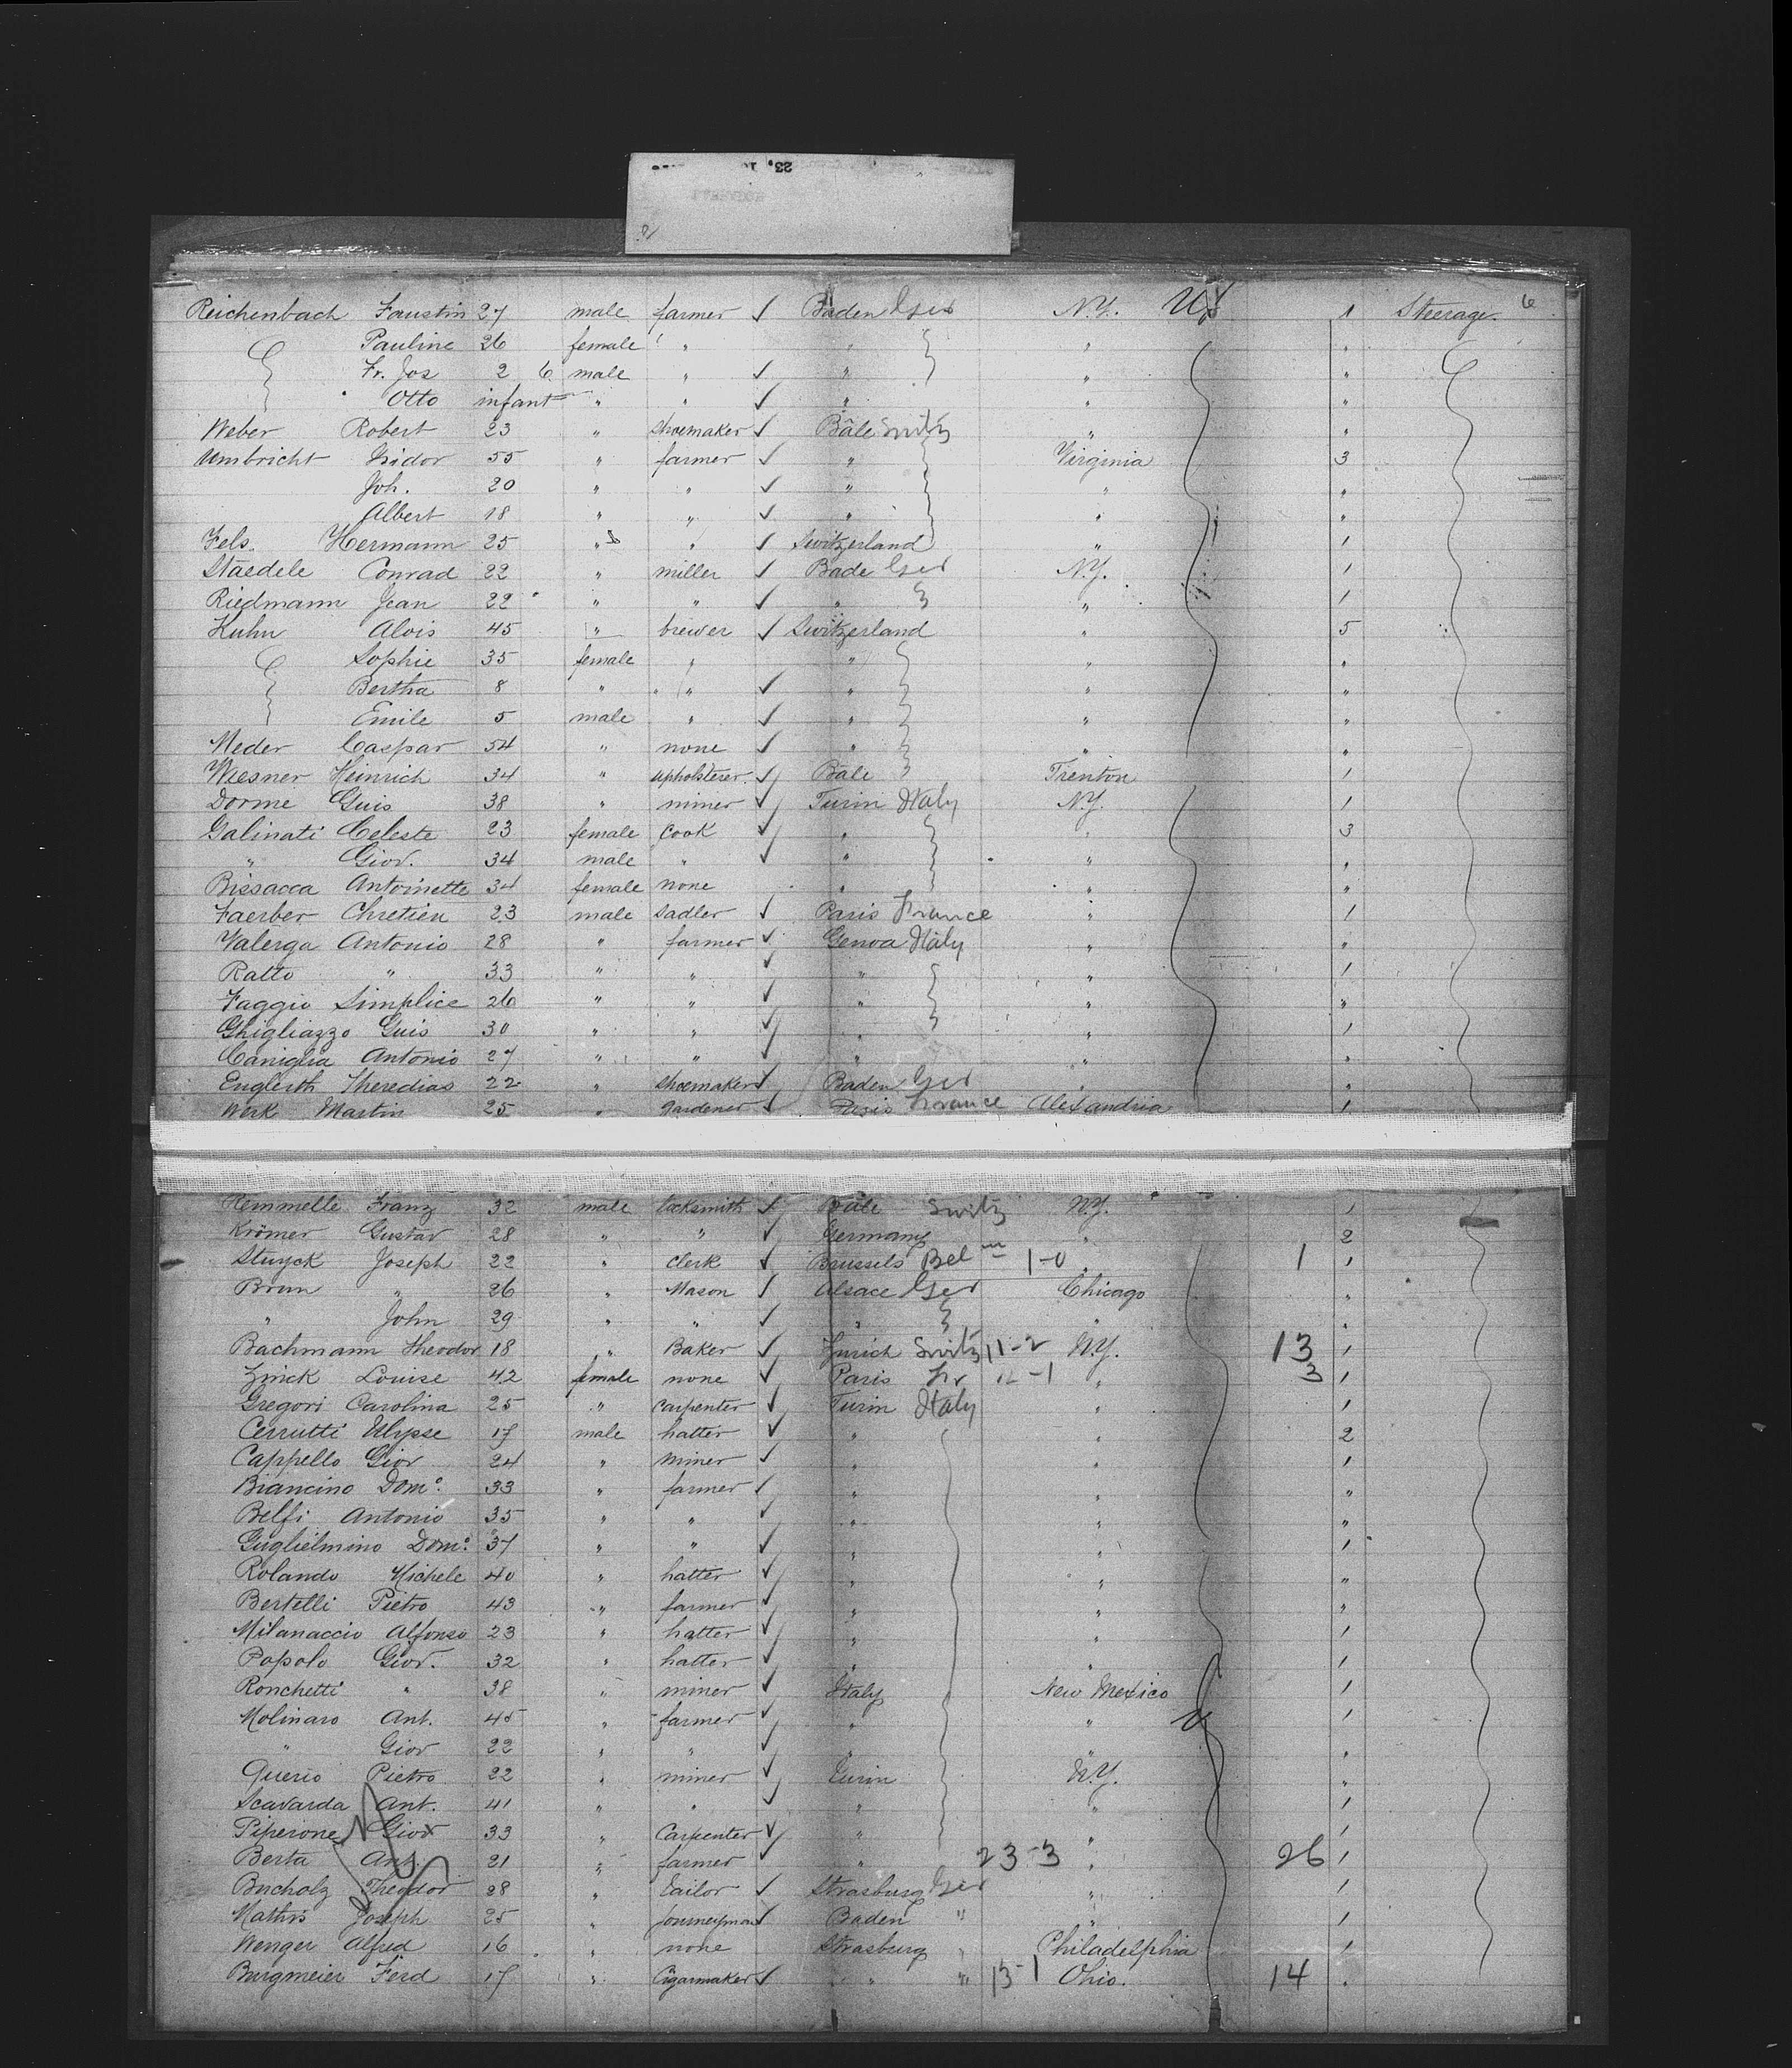 Reichenbach Faustin 27 male farmer ✓ Baden Ger N.Y. U.S 1 Steerage. 6
Pauline 26 female " " " "
Fr. Jos 2 6 male " ✓ " " "
Otto infant " " ✓ " " "
Weber Robert 23 " shoemaker ✓ Bâle Switz " "
Umbricht Isidor 55 " farmer ✓ " Virginia 3
Joh. 20 " " ✓ " " "
Albert 18 " " ✓ " " "
Fels. Hermann 25 " " ✓ Switzerland " 1
Staedele Conrad 22 " miller ✓ Bade Ger N.Y. 1
Riedmann Jean 22 " " ✓ " " 1
Kuhn Alois 45 " brewer ✓ Switzerland " 5
Sophie 35 female " " " "
Bertha 8 " " ✓ " " "
Emile 5 male " ✓ " " "
Meder Caspar 54 " none ✓ " " "
Wiesner Heinrich 34 " upholsterer. ✓ Bâle Trenton 1
Dorme Guis 38 " miner ✓ Turin Italy N.Y. 1
Galinati Celeste 23 female Cook ✓ " " 3
" Giov. 34 male " ✓ " " "
Bissacca Antoinette 34 female none " " "
Faerber Chretien 23 male Sadler ✓ Paris France " 1
Valerga Antonio 28 " farmer ✓ Genoa Italy " "
Ratto " 33 " " ✓ " " 1
Faggio Simplice 26 " " ✓ " " "
Ghigliazzo Guis 30 " " ✓ " " 1
Caniglia Antonio 27 " " ✓ " " "
Englerth 22 " shoemaker ✓ Baden Ger " "
Werk Martin 25 " gardener ✓ Paris France Alexandria 1
Hemmelle Franz 32 male locksmith ✓ Bâle Switz N.Y. 1
Krömer Gustav 28 " " ✓ Germany " 2
Stuyck Joseph 22 " Clerk ✓ Brussels Bel m 1-0 " 1 1
Brun " 26 " Mason ✓ Alsace Ger Chicago "
" John 29 " " ✓ " " "
Bachmann Theodor 18 " Baker ✓ Zurich Switz 11-2 N.Y. 13 1
Zinck Louise 42 female none ✓ Paris Fr -1 " 3 1
Gregori Carolina 25 " Carpenter ✓ Turin Italy " 1
Cerrutti Ulysse 17 male hatter ✓ " " 2
Cappello Giov 24 " miner ✓ " " 1
Biancino Domo. 33 " farmer ✓ " " "
Belfi Antonio 35 " " ✓ " " "
Guglielmino Domo. 37 " " ✓ " " 1
Rolando Michele 40 " hatter ✓ " " "
Bertelli Pietro 43 " farmer ✓ " " "
Milanaccio Alfonso 23 " hatter ✓ " " 1
Popolo Giov. 32 " hatter ✓ " " 1
Ronchetti " 38 " miner ✓ Italy New Mexico 1
Molinaro Ant. 45 " farmer ✓ " " 1
" Giov 22 " " ✓ " " "
Querio Pietro 22 " miner ✓ Turin N.Y. "
Scavarda Ant. 41 " " ✓ " " 1
Piperone Giov 33 " Carpenter ✓ " " 1
Berta Ant. 21 " farmer ✓ " 23-3 " 26 1
Bucholz Theodor 28 " Tailor ✓ Strasburg Ger " 1
Mathis Joseph 25 " Journeyman ✓ Baden " " 1
Wenger Alfred 16 " none Strasburg " Philadelphia 1
Burgmeier Ferd 17 " Cigarmaker ✓ " " 13-1 Ohio. 14 "